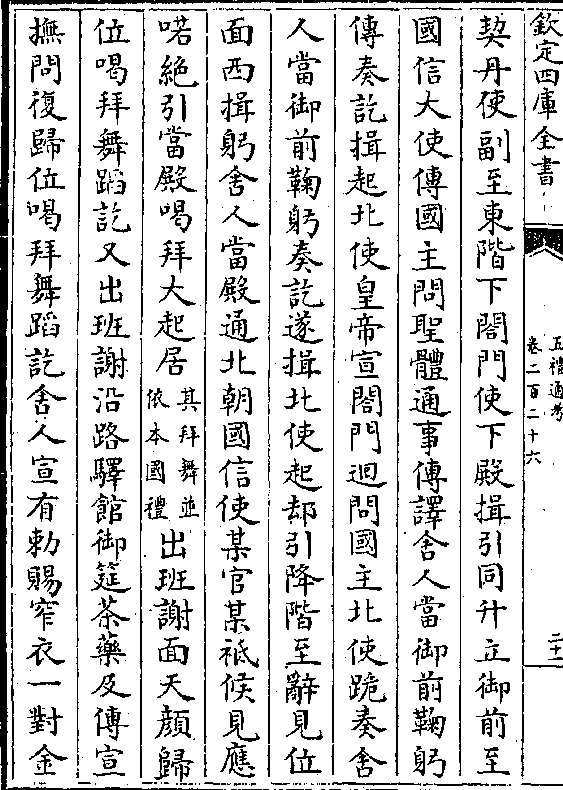 欽定四庫全書
五禮通考
卷二百二十六
二十一
契丹使副至東階下閤門使下殿揖引同升立御前至
國信大使傳國主問聖體通事傳譯舍人當御前鞠躬
傳奏訖揖起北使皇帝宣閤門迴問國主北使跪奏舍
人當御前鞠躬奏訖遂揖北使起却引降階至辭見位
面西揖躬舍人當殿通北朝國信使某官某祗候見應
喏絶引當殿喝拜大起居其拜舞並依本國禮出班謝面天顔歸
位喝拜舞蹈訖又出班謝沿路驛館御筵茶藥及傳宣
撫問復歸位喝拜舞蹈訖舍人宣有勅賜窄衣一對金